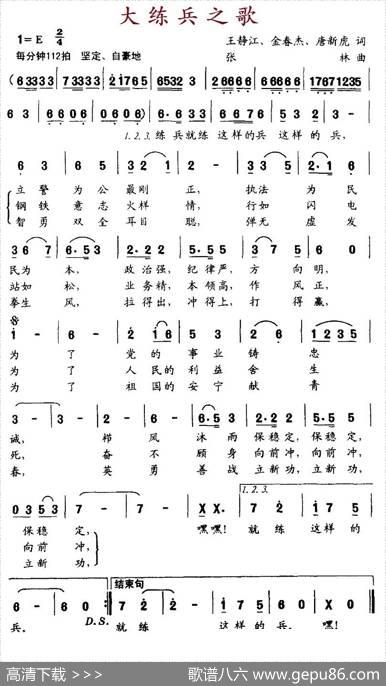 大练兵之歌
1=E 2/4
王静江、金春杰、唐新虎 词
每分钟112拍 坚定、自豪地
张 林 曲
( 63333 73333 2·1765 6532 3 26666 26666 17671235
1.2.3.练兵就练 这样的兵 这样的 兵,
6 3 6 5 3 2 1 2 - 3 3 5 2·1 6
立 警 为 公 最刚 正, 执法 为 民
钢 铁 意 志 火样 情, 行如 闪 电
智 勇 双 全 耳目 聪, 弹无 虚 发
3 6 7 6·5 3 2·2 2 5·5 5 3 5 7 6 0
民为 本, 政治强, 纪律严, 方 向 明,
站如 松, 业务精, 本领高, 作 风 正,
拳生 风, 拉得出, 冲得上, 打 得 赢,
1 - 6 - 2 1 6 5 6 2 6 1 2 3 5
为 了 党的 事业 铸 忠
为 了 人民的 利益 舍 生
为 了 祖国的 安宁 献 青
3 - 3 - 2 6 6·5 3 2·2 2 5·5 5
诚, 栉 风 沐 雨 保稳定, 保稳定,
死, 奋 不 顾 身 向前冲, 向前冲,
春, 英 勇 善 战 立新功, 立新功,
1.2.3.
0 3 5 3 7 - 7 - X X. 7 2 1 7 5
保稳 定, 嘿嘿! 就 练 这样的
向前 冲,
立新 功,
结束句
6 - 6 0 7 2 2 - 1 7 5 6 6 0 X 0
D.S.
兵。 就 练 这样的 兵。 嘿!
高清下载 >>>
歌谱八六 www.gepu86.com